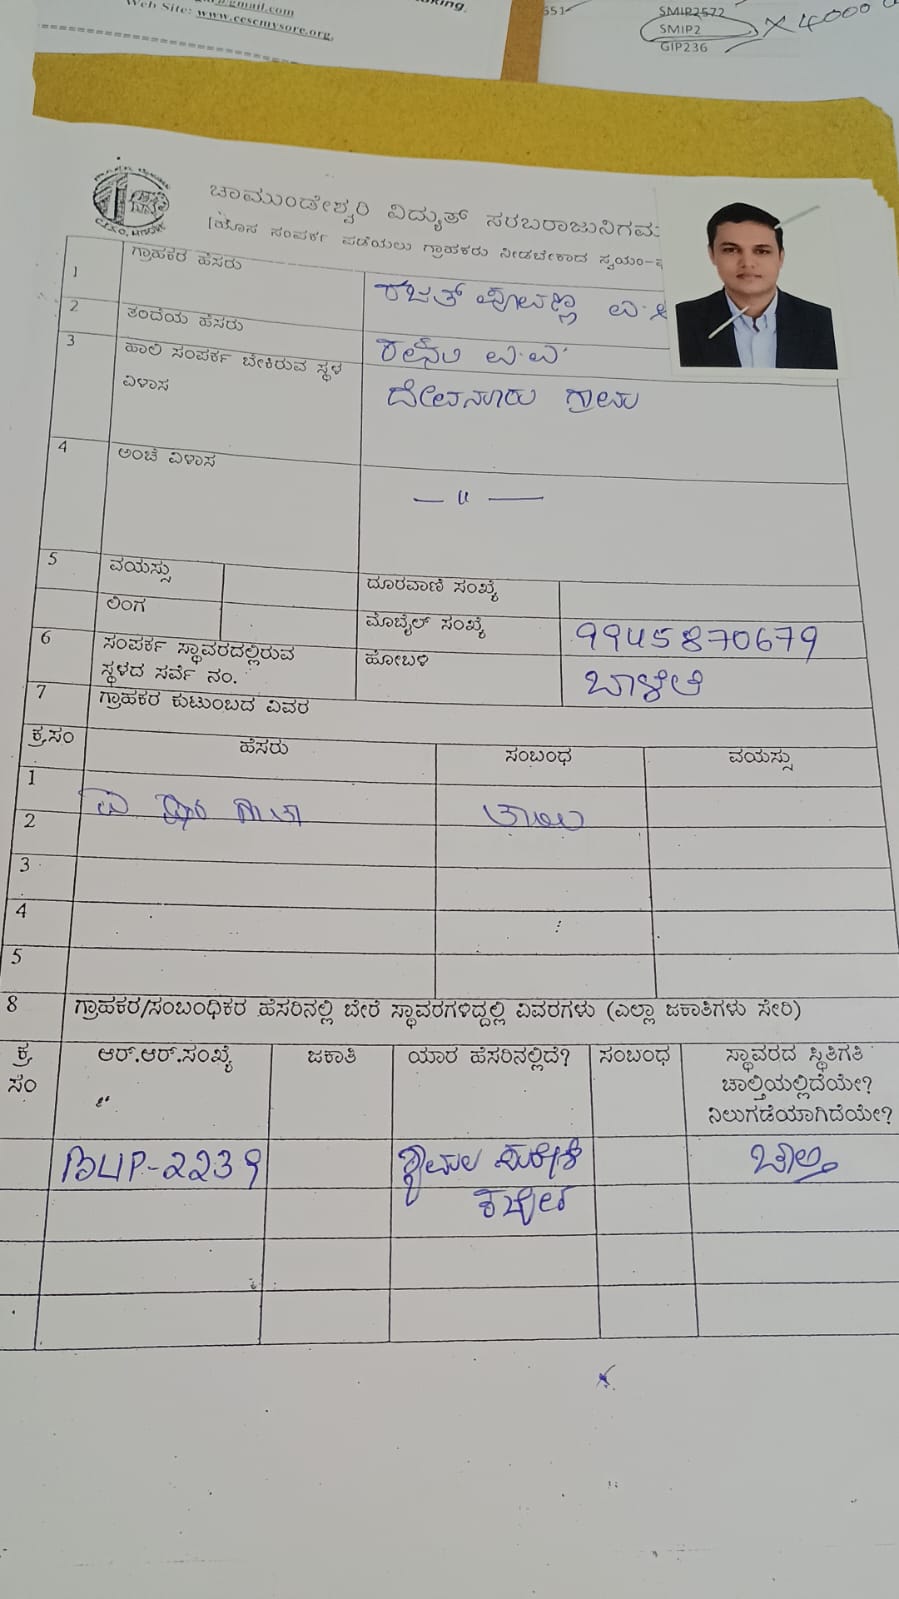 @gmail.com
Web Site: www.cescmysore.org.
SMIP2572
SMIP2
GIP236
x 4000
ಚಾಮುಂಡೇಶ್ವರಿ ವಿದ್ಯುತ್ ಸರಬರಾಜುನಿಗಮ
ಹೊಸ ಸಂಪರ್ಕ ಪಡೆಯಲು ಗ್ರಾಹಕರು ನೀಡಬೇಕಾದ ಸ್ವಯಂ-
1 ಗ್ರಾಹಕರ ಹೆಸರು ರಜತ್ ಪೂವಣ್ಣ
2 ತಂದೆಯ ಹೆಸರು
3 ಹಾಲಿ ಸಂಪರ್ಕ ಬೇಕಿರುವ ಸ್ಥಳ
ವಿಳಾಸ ದೇವನೂರು ಗ್ರಾಮ
4 ಅಂಚೆ ವಿಳಾಸ — " —
5 ವಯಸ್ಸು ದೂರವಾಣಿ ಸಂಖ್ಯೆ
ಲಿಂಗ ಮೊಬೈಲ್ ಸಂಖ್ಯೆ 9945870679
6 ಸಂಪರ್ಕ ಸ್ಥಾವರದಲ್ಲಿರುವ ಹೋಬಳಿ ಬಾಳೆಲೆ
ಸ್ಥಳದ ಸರ್ವೆ ನಂ.
7 ಗ್ರಾಹಕರ ಕುಟುಂಬದ ವಿವರ
ಕ್ರ.ಸಂ ಹೆಸರು ಸಂಬಂಧ ವಯಸ್ಸು
1
2 ತಾಯಿ
3
4
5
8 ಗ್ರಾಹಕರ/ಸಂಬಂಧಿಕರ ಹೆಸರಿನಲ್ಲಿ ಬೇರೆ ಸ್ಥಾವರಗಳಿದ್ದಲ್ಲಿ ವಿವರಗಳು (ಎಲ್ಲಾ ಜಕಾತಿಗಳು ಸೇರಿ)
ಕ್ರ ಆರ್.ಆರ್.ಸಂಖ್ಯೆ ಜಕಾತಿ ಯಾರ ಹೆಸರಿನಲ್ಲಿದೆ? ಸಂಬಂಧ ಸ್ಥಾವರದ ಸ್ಥಿತಿಗತಿ
ಸಂ ಚಾಲ್ತಿಯಲ್ಲಿದೆಯೇ?
ನಿಲುಗಡೆಯಾಗಿದೆಯೇ?
BLIP-2239 ಚಾಲ್ತಿ